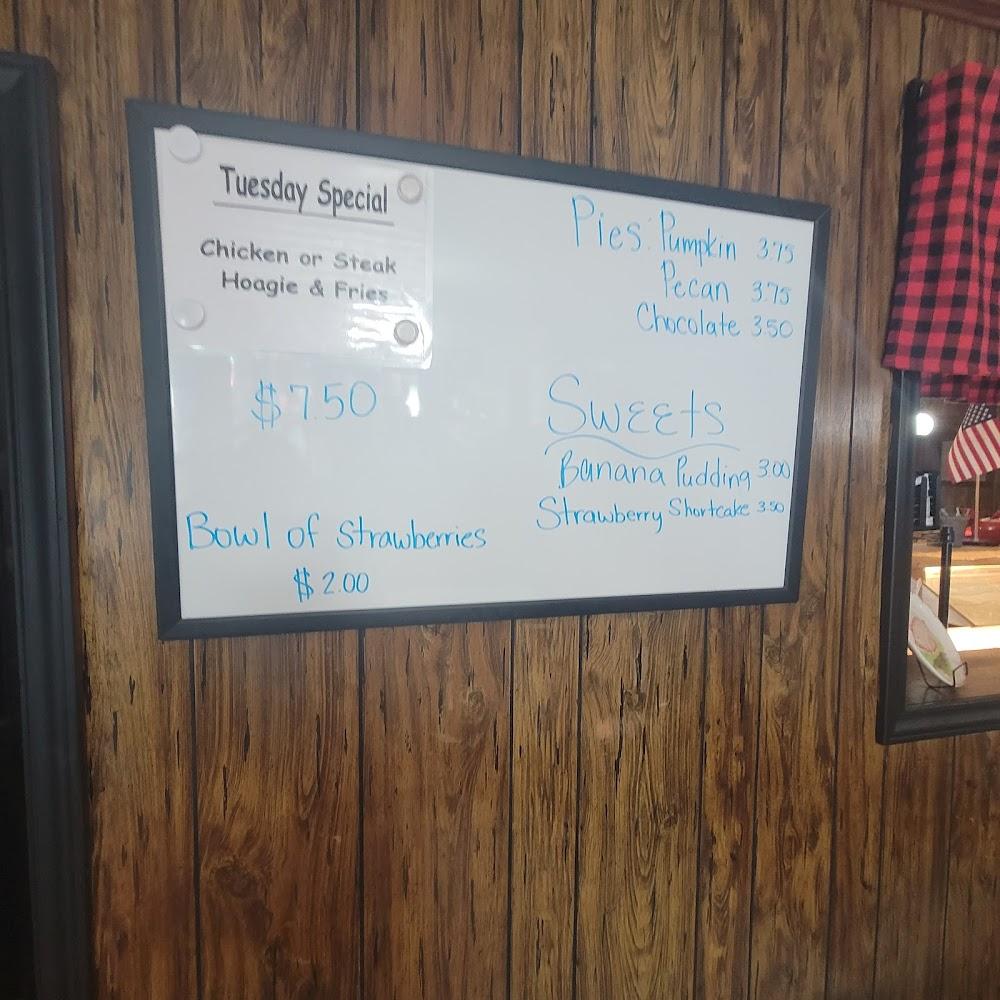 Tuesday Special
Chicken or Steak
Hoagie & Fries
$7.50
Bowl of Strawberries
$2.00
Pies: Pumpkin 3.75
Pecan 3.75
Chocolate 3.50
Sweets
Banana Pudding 3.00
Strawberry Shortcake 3.50